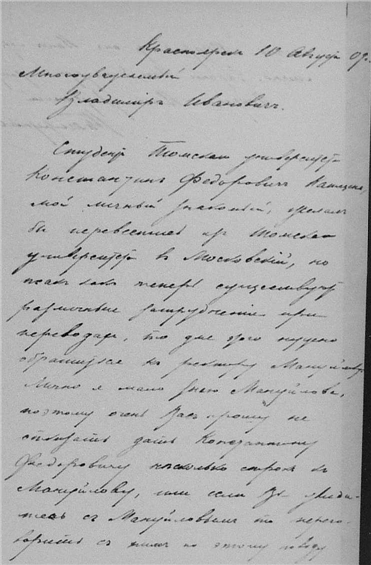 Красноярск 10 Август 09.
Многоуважаемый
Владимиръ Ивановичъ.
Студентъ Томскаго университета
Константинъ Федоровичъ
мой личный знакомый, желалъ
бы перевестись изъ Томскаго
университета въ Московскій, но
такъ какъ теперь существуютъ
различныя затрудненія при
переводахъ, то для этого нужно
обратиться къ ректору Мануйлову.
Лично я мало знаю Мануйлова,
поэтому очень Васъ прошу не
отказать дать Константину
Федоровичу нѣсколько строкъ къ
Мануйлову, или если Вы увиди-
тесь съ Мануйловымъ то перего-
ворить съ нимъ по этому поводу